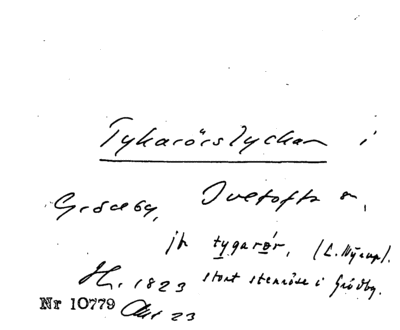 Tykarörslyckan i
Grödby, Ivetofta sn,
jk tygarör, (L. Nyrup).
Hr. 1823 stort stenröse i Grödby.
Nr 10779 Akt 23